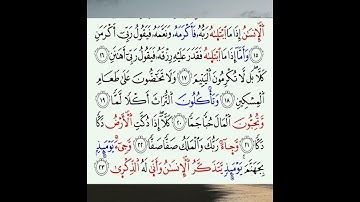 ٱلۡإِنسَٰنُ إِذَا مَا ٱبۡتَلَىٰهُ رَبُّهُۥ فَأَكۡرَمَهُۥ وَنَعَّمَهُۥ فَيَقُولُ رَبِّيٓ أَكۡرَمَنِ
١٥ وَأَمَّآ إِذَا مَا ٱبۡتَلَىٰهُ فَقَدَرَ عَلَيۡهِ رِزۡقَهُۥ فَيَقُولُ رَبِّيٓ أَهَٰنَنِ ١٦
كَلَّاۖ بَل لَّا تُكۡرِمُونَ ٱلۡيَتِيمَ ١٧ وَلَا تَحَٰٓضُّونَ عَلَىٰ طَعَامِ
ٱلۡمِسۡكِينِ ١٨ وَتَأۡكُلُونَ ٱلتُّرَاثَ أَكۡلٗا لَّمّٗا ١٩
وَتُحِبُّونَ ٱلۡمَالَ حُبّٗا جَمّٗا ٢٠ كَلَّآۖ إِذَا دُكَّتِ ٱلۡأَرۡضُ دَكّٗا
دَكّٗا ٢١ وَجَآءَ رَبُّكَ وَٱلۡمَلَكُ صَفّٗا صَفّٗا ٢٢ وَجِاْيٓءَ يَوۡمَئِذِۭ
بِجَهَنَّمَۚ يَوۡمَئِذٖ يَتَذَكَّرُ ٱلۡإِنسَٰنُ وَأَنَّىٰ لَهُ ٱلذِّكۡرَىٰ ٢٣